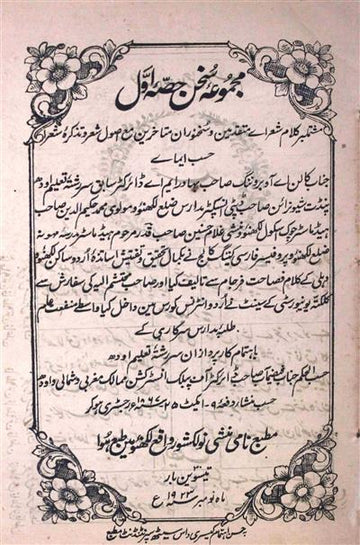 مجموعۂ سخن حصۂ اوّل
مشتمل بر کلام شعراے متقدمین و سخنوران متاخرین مع اصول شعر و تذکرۂ شعرا
حسب ایماے
جناب کالن اے آر بروننگ صاحب بہادر ایم اے ڈائرکٹر سابق سررشتۂ تعلیم اودھ
پنڈت شیو نراین صاحب ڈپٹی انسپکٹر مدارس ضلع لکھنؤ و مولوی محمد حکیم الدین صاحب
ہیڈ ماسٹر چوک اسکول لکھنؤ و منشی غلام حسنین صاحب قدر مرحوم ہیڈ ماسٹر مدرسہ
ضلع لکھنؤ و پروفیسر فارسی کیننگ کالج نے بکمال تحقیق و تفتیش اساتذۂ اردو ساکن لکھنؤ و
دہلی کے کلام فصاحت فرجام سے تالیف کیا اور صاحب محتشم الیہ کی سفارش سے
کلکتہ یونیورسٹی کے سینٹ نے اردو انٹرنس کورس میں داخل کیا واسطے منفعت علم
طلبۂ مدارس سرکاری کے
باہتمام کارپردازان سررشتۂ تعلیم اودھ
حسب الحکم جناب فیضمآب صاحب ڈائرکٹر آف پبلک انسٹرکشن ممالک مغربی و شمالی و اودھ
حسب منشاء دفعہ ۹ - ایکٹ ۲۵ ۱۸۶۷ء رجسٹری ہوکر
مطبع نامی منشی نولکشور واقع لکھنؤ میں طبع ہوا
بار
ماہ نومبر ۱۹۲۳ع
بحسن اہتمام کیسری داس سیٹھ سپرنٹنڈنٹ مطبع